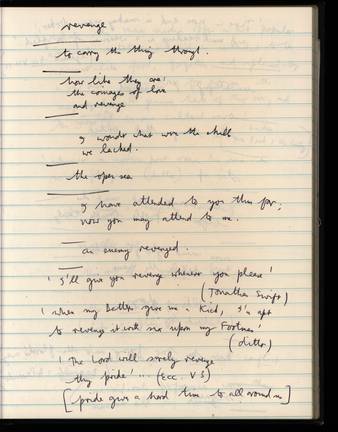 revenge
to carry the thing through.
how like they are:
the comeyes of love
and revenge
I wonder what were the skill
we lacked.
the open sea
I have attended to you thus far;
now you may attend to me.
an enemy revenged.
'I'll give you revenge whenever you please'
(Jonathan Swift)
'When my betters give me a Kick, I'm apt
to revenge it with six upon my Footman'
(ditto)
'The Lord will surely revenge
thy pride' ... (Ecc. V 3)
[pride give a hard time to all around us]